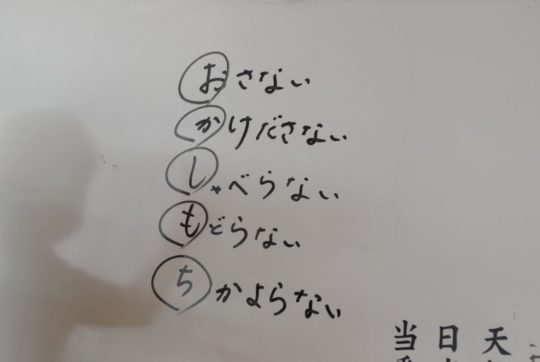 おさない
かけださない
しゃべらない
もどらない
ちかよらない
当日天